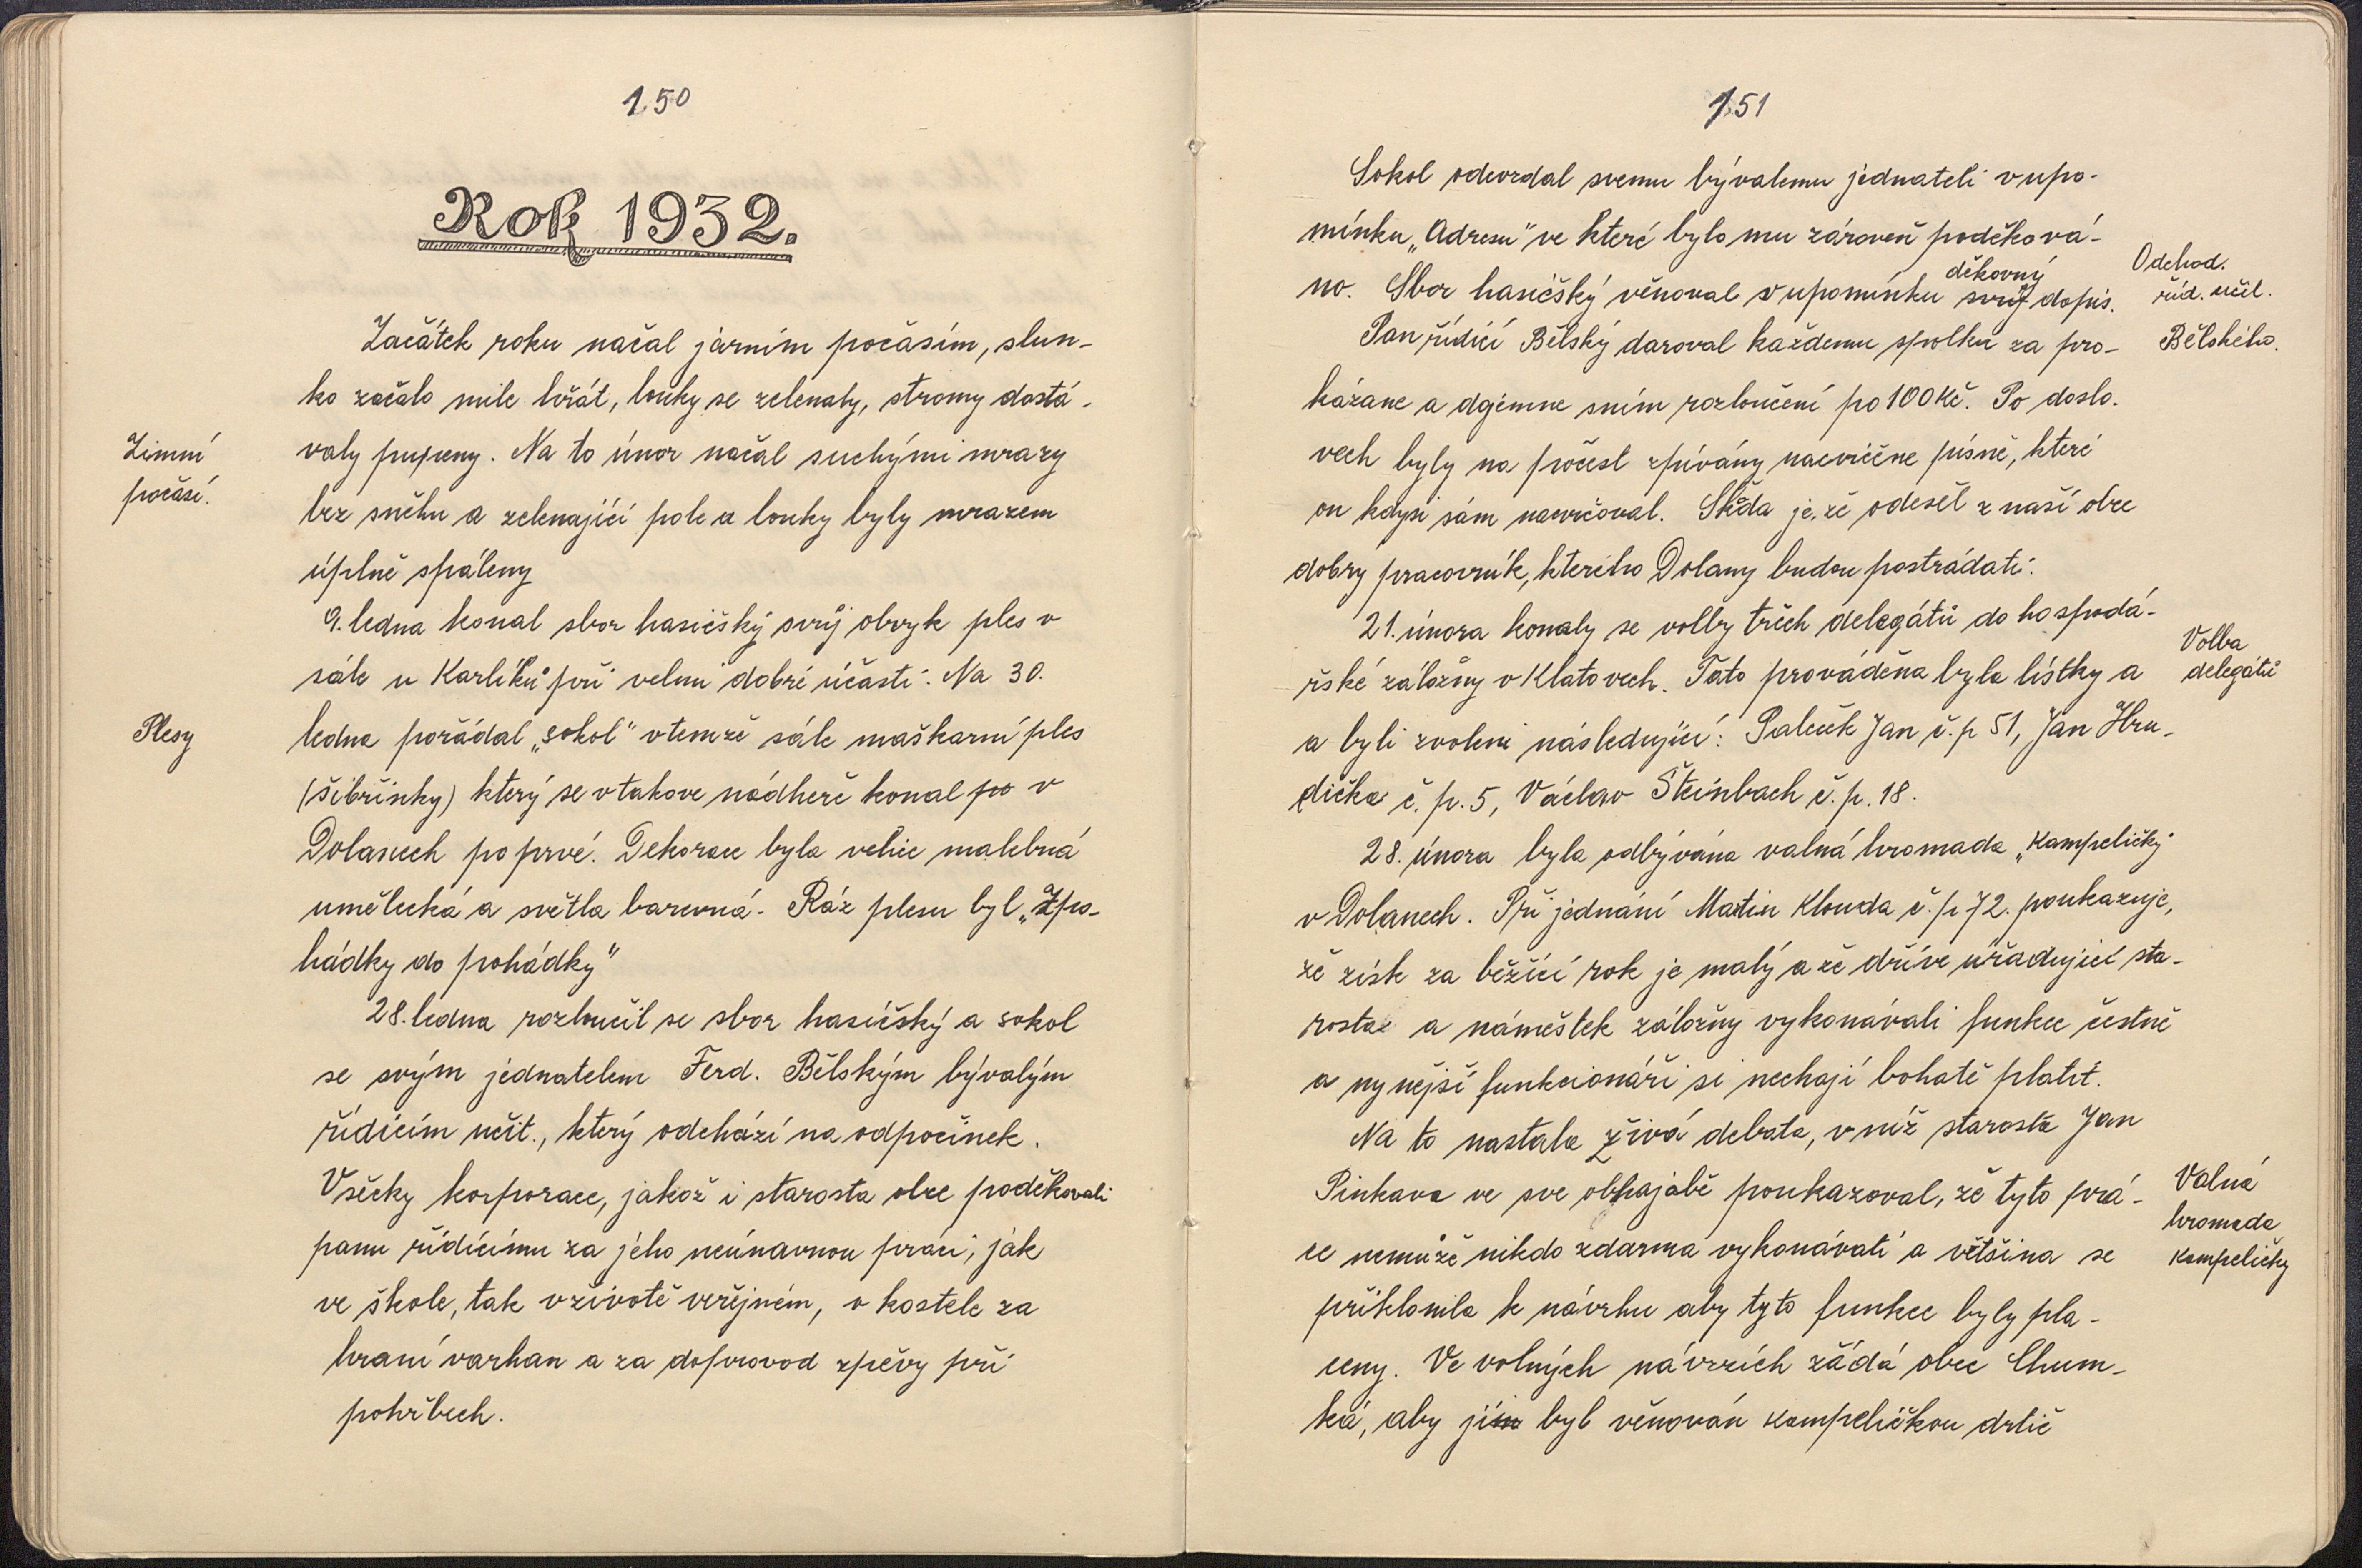 150
Rok 1932.
Začátek roku načal jarním počasím, slun-
ko začalo mile hřát, louky se zelenaly, stromy dostá-
Zimní
počasí.
valy pupeny. Na to únor načal suchými mrazy
bez sněhu a zelenající pole a louky byly mrazem
úplně spáleny
9. ledna konal sbor hasičský svůj obvyk ples v
sále u Karlíků při velmi dobré účasti. Na 30.
Plesy
ledna pořádal „sokol" vtemže sále maškarní ples
(šibřinky) který se v takove nádheře konal po v
Dolanech po prvé. Dekorace byla velice malebná
umělecká a světla barevná. Ráz plesu byl „Zpo-
hádky do pohádky"
28. ledna rozloučil se sbor hasičský a sokol
se svým jednatelem Ferd. Bělským bývalým
řídícím učit., který odchází na odpočinek.
Všecky korporace, jakož i starosta obce poděkovali
panu řídícímu za jeho neúnavnou práci, jak
ve škole, tak v životě veřejném, v kostele za
hraní varhan a za doprovod zpěvy při
pohřbech.
151
Sokol odevzdal svemu bývalemu jednateli v upo-
mínku „Adresu" ve které bylo mu zároveň poděková-
no. Sbor hasičský věnoval v upomínku svůj děkovný dopis.
Odchod.
říd. učit.
Bělského.
Pan řídící Bělský daroval každemu spolku za pro-
kázane a dojemne sním rozloučení po 100 Kč. Po doslo-
vech byly na počest zpívány nacvičene písně, které
on kdysi sám nacvičoval. Škoda je, že odešel z naší obce
dobry pracovník, kterého Dolany budou postrádati.
21. února konaly se volby třech delegátů do hospodá-
Volba
delegátů
řské záložny v Klatovech. Tato prováděna byla lístky a
a byli zvoleni následující: Paleček Jan č.p 51, Jan Hru-
dička č. p. 5, Václav Šteinbach č. p. 18.
28. února byla odbývána valná hromada „Kampeličky
v Dolanech. Při jednání Martin Klouda č.p 72. poukazuje,
že zisk za běžící rok je malý a že dříve úřadující sta-
rosta a náměstek záložny vykonávali funkce čestně
a nynější funkcionáři si nechají bohatě platit.
Na to nastala živá debata, v níž starosta Jan
Valná
hromada
kampeličky
Pinkava ve sve obhajobě poukazoval, že tyto prá-
ce nemůže nikdo zdarma vykonávati a většina se
příklonila k návrhu aby tyto funkce byly pla-
ceny. Ve volných návrzích žádá obec Chum-
ká, aby jim byl věnován kampeličkou drtič